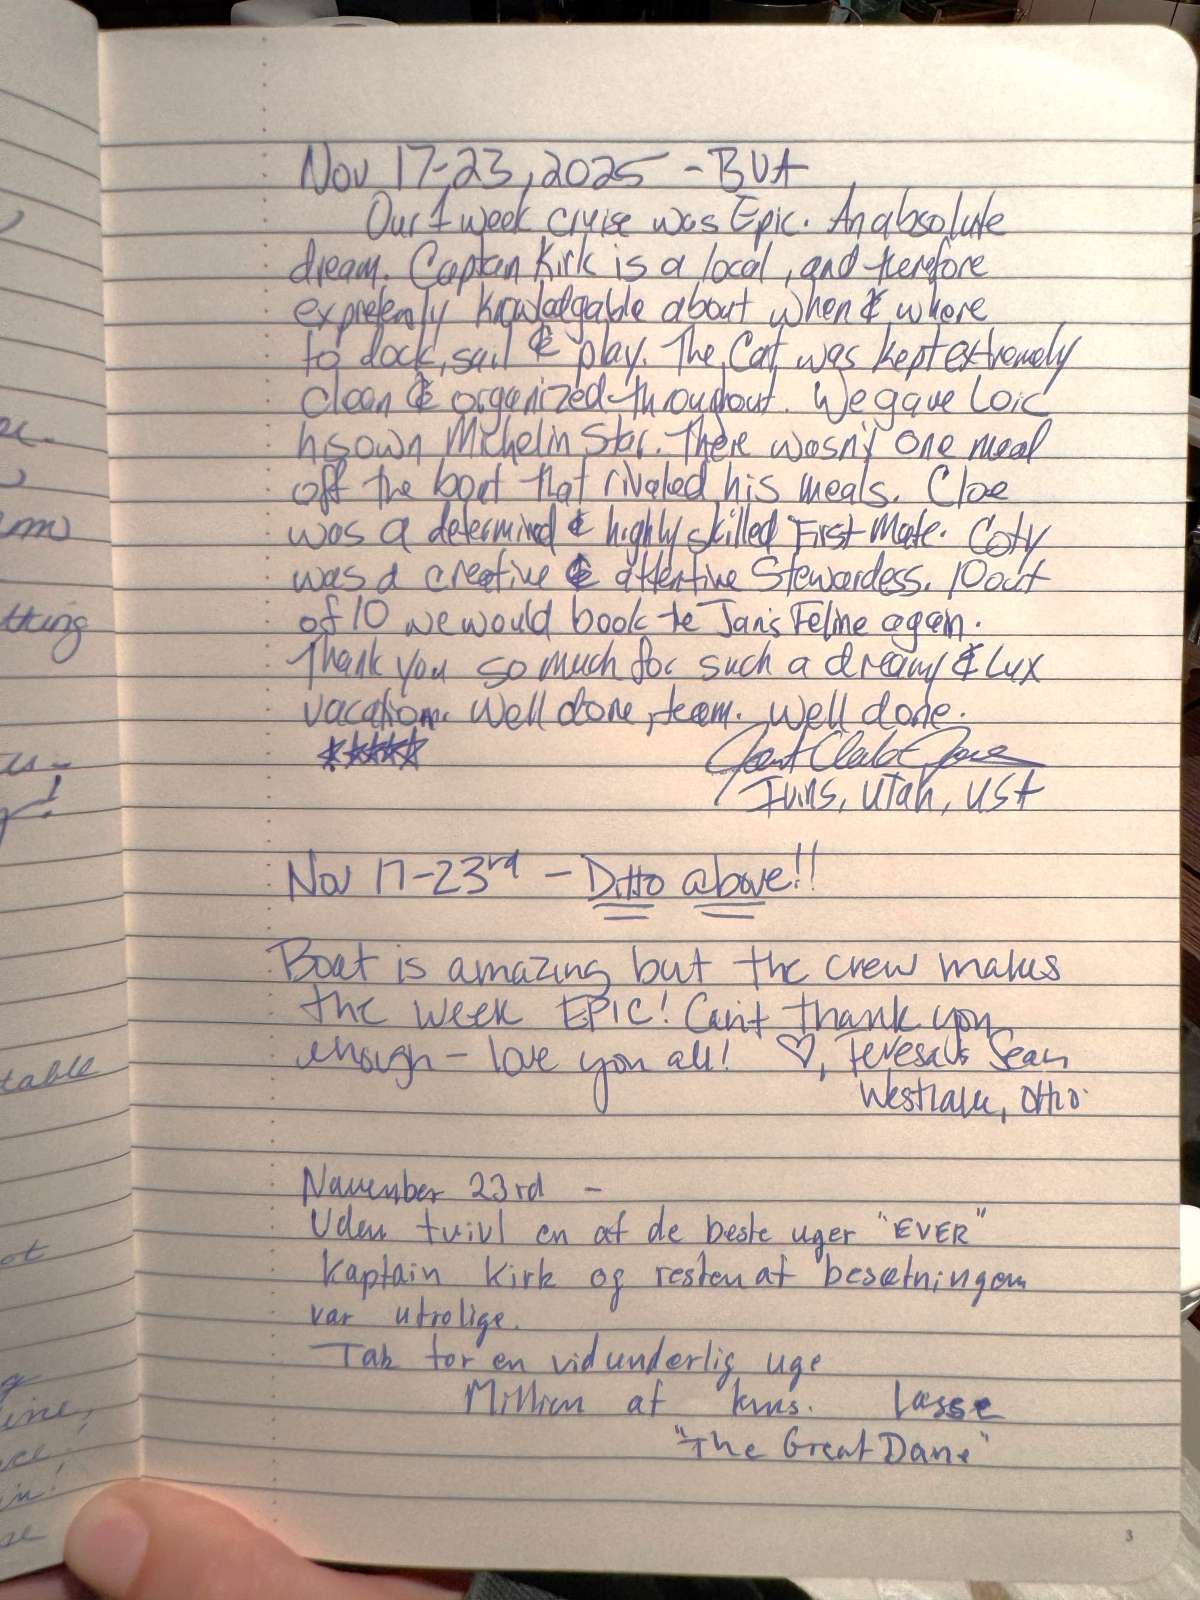 Nov 17-23, 2025 - BVA
Our 1 week cruise was Epic. An absolute
dream. Captan Kirk is a local, and therefore
knowledgable about when & where
to dock, sail & play. The Cat was kept extremely
clean & organized throughout. We gave Loic
his own Michelin Star. There wasn't one meal
off the boat that rivaled his meals. Cloe
was a determind & highly skilled First Mate. Coty
was a creative & attentive Stewardess. 10 out
of 10 we would book te Jan's Feline again.
Thank you so much for such a dreamy & Lux
vacation. Well done, team. Well done.
★★★★★
Ivins, Utah, USA
Nov 17-23rd - Ditto above!!
Boat is amazing but the crew makes
the week EPIC! Can't thank you
enough - love you all! ♡, Teresa & Sean
Westlake, Ohio
November 23rd -
Uden tvivl en af de beste uger "EVER"
Kaptain Kirk og resten af besætningen
var utrolige.
Tak for en vidunderlig uge
Million af kms. Lasse
"The Great Dane"
3
thing
table